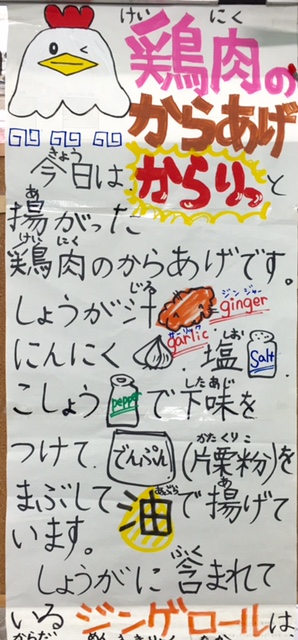 けい にく
鶏肉の
からあげ
きょう
今日は からりっと
あ
揚がった
けい にく
鶏肉のからあげです。
じる ジンジャー
しょうが汁 ginger
ガーリック
garlic しお
にんにく 塩 Salt
したあじ
こしょう pepper で下味を
かたくりこ
つけて でんぷん (片栗粉)を
あぶら あ
まぶして油で揚げて
います。
ふく
しょうがに含まれて
いるジンゲロールは
からだ